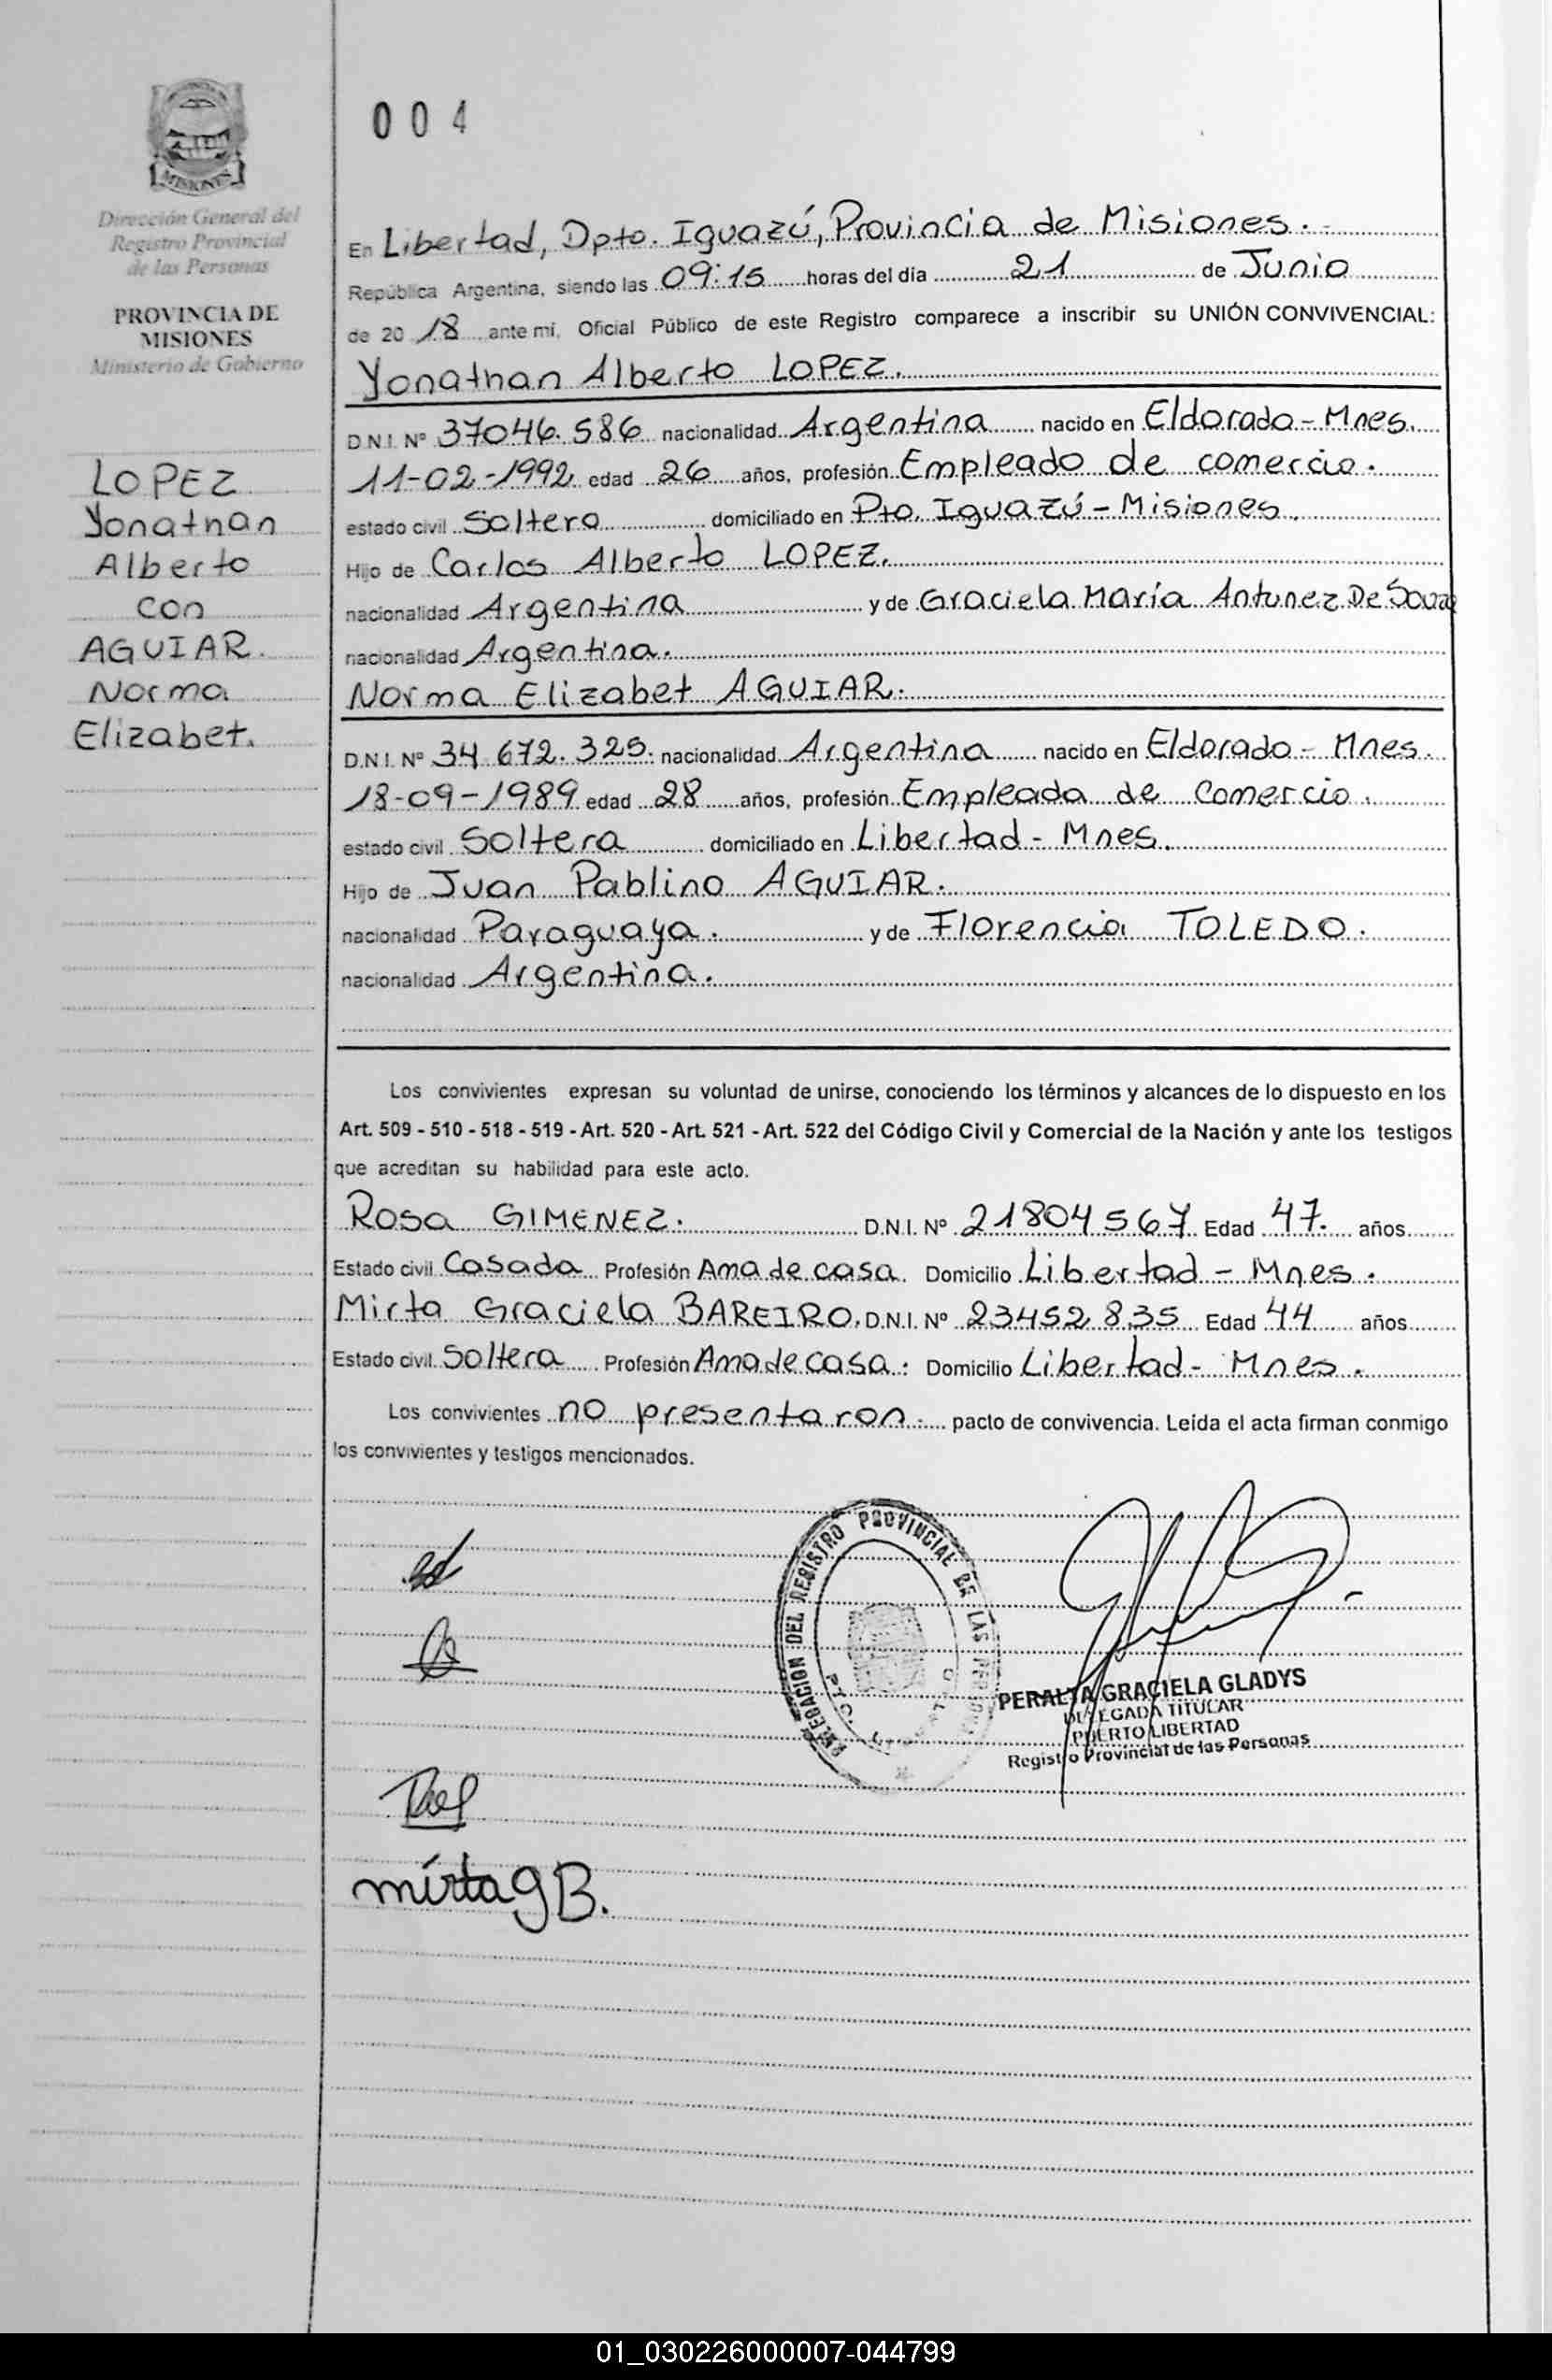 MISIONES
Dirección General del
Registro Provincial
de las Personas
PROVINCIA DE
MISIONES
Ministerio de Gobierno
LOPEZ
Yonathan
Alberto
con
AGUIAR.
Norma
Elizabet.
004
En Libertad, Dpto. Iguazú, Provincia de Misiones.
República Argentina, siendo las 09:15 horas del día 21 de Junio
de 2018 ante mí, Oficial Público de este Registro comparece a inscribir su UNIÓN CONVIVENCIAL:
Yonathan Alberto LOPEZ.
D.N.I. Nº 37046.586 nacionalidad Argentina nacido en Eldorado - Mnes.
11-02-1992 edad 26 años, profesión Empleado de comercio.
estado civil Soltero domiciliado en Pto. Iguazú - Misiones.
Hijo de Carlos Alberto LOPEZ.
nacionalidad Argentina y de Graciela María Antunez De Souza
nacionalidad Argentina.
Norma Elizabet AGUIAR.
D.N.I. Nº 34.672.325. nacionalidad Argentina nacido en Eldorado - Mnes.
18-09-1989 edad 28 años, profesión Empleada de Comercio.
estado civil Soltera domiciliado en Libertad - Mnes.
Hijo de Juan Pablino AGUIAR.
nacionalidad Paraguaya. y de Florencia TOLEDO.
nacionalidad Argentina.
Los convivientes expresan su voluntad de unirse, conociendo los términos y alcances de lo dispuesto en los
Art. 509 - 510 - 518 - 519 - Art. 520 - Art. 521 - Art. 522 del Código Civil y Comercial de la Nación y ante los testigos
que acreditan su habilidad para este acto.
Rosa GIMENEZ. D.N.I. Nº 21804567 Edad 47. años
Estado civil Casada Profesión Ama de casa. Domicilio Libertad - Mnes.
Mirta Graciela BAREIRO. D.N.I. Nº 23452835 Edad 44 años
Estado civil Soltera Profesión Ama de casa. Domicilio Libertad - Mnes.
Los convivientes no presentaron. pacto de convivencia. Leída el acta firman conmigo
los convivientes y testigos mencionados.
DELEGACION DEL REGISTRO PROVINCIAL DE LAS PERSONAS
PTO.
PERALTA GRACIELA GLADYS
DELEGADA TITULAR
PUERTO LIBERTAD
Registro Provincial de las Personas
mirta g B.
01_030226000007-044799